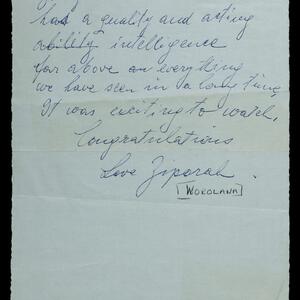 has a quality and acting
ability intelligence
far above on everything
we have seen in a long time
It was exciting to watch.
Congratulations
Love Ziporah.
[WOROLANA]